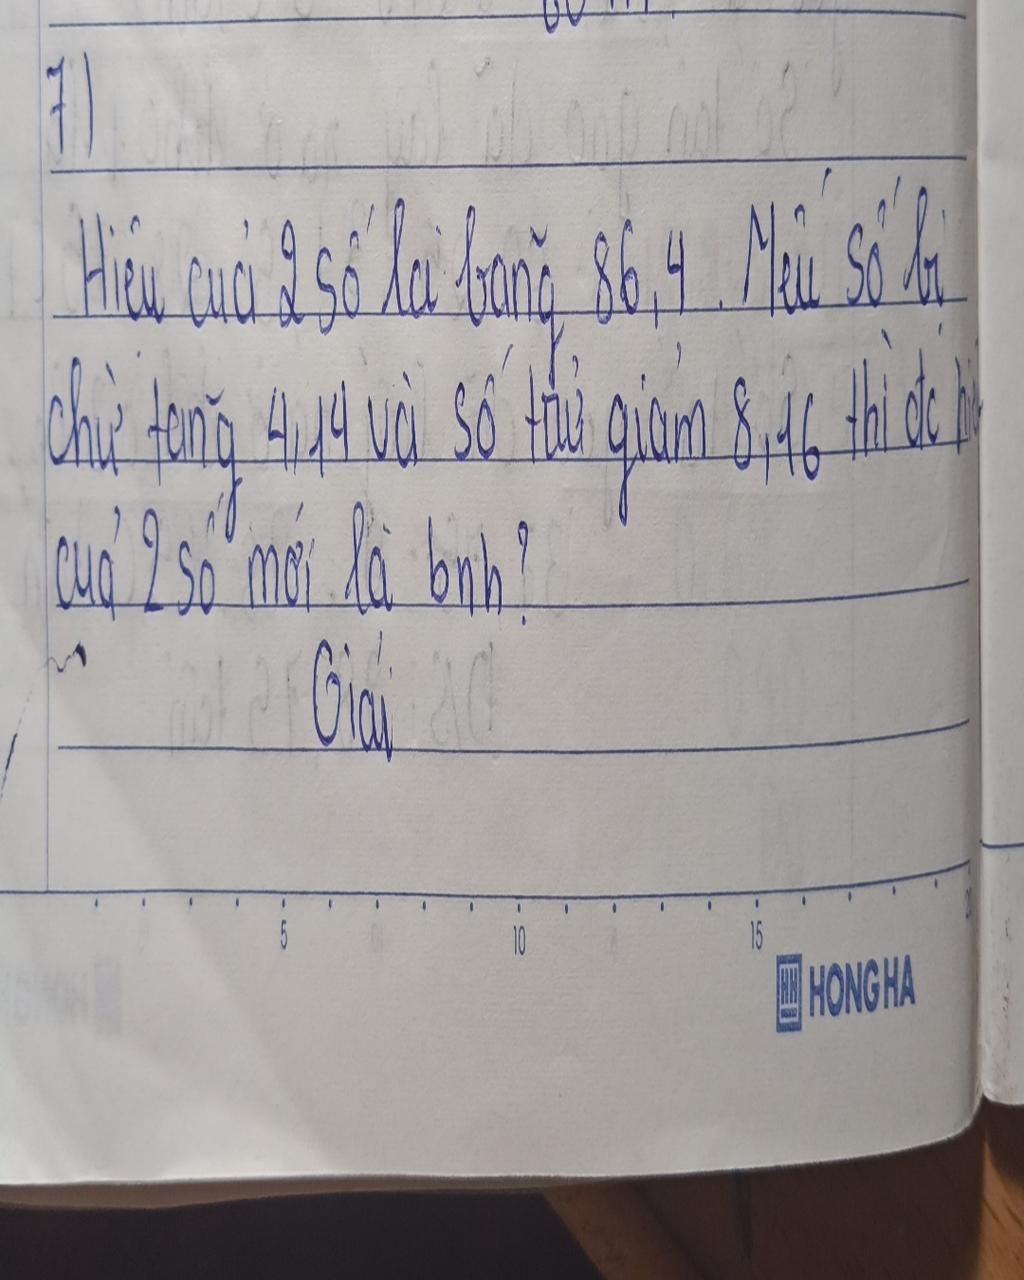 7)
Hiệu củả 2 số là bằng 86,4. Nếu số bị
chừ tăng 4,14 và số trừ giảm 8,16 thì đc
củả 2 số mới là bnh?
Giải
5 10 15 20
HH HONG HA